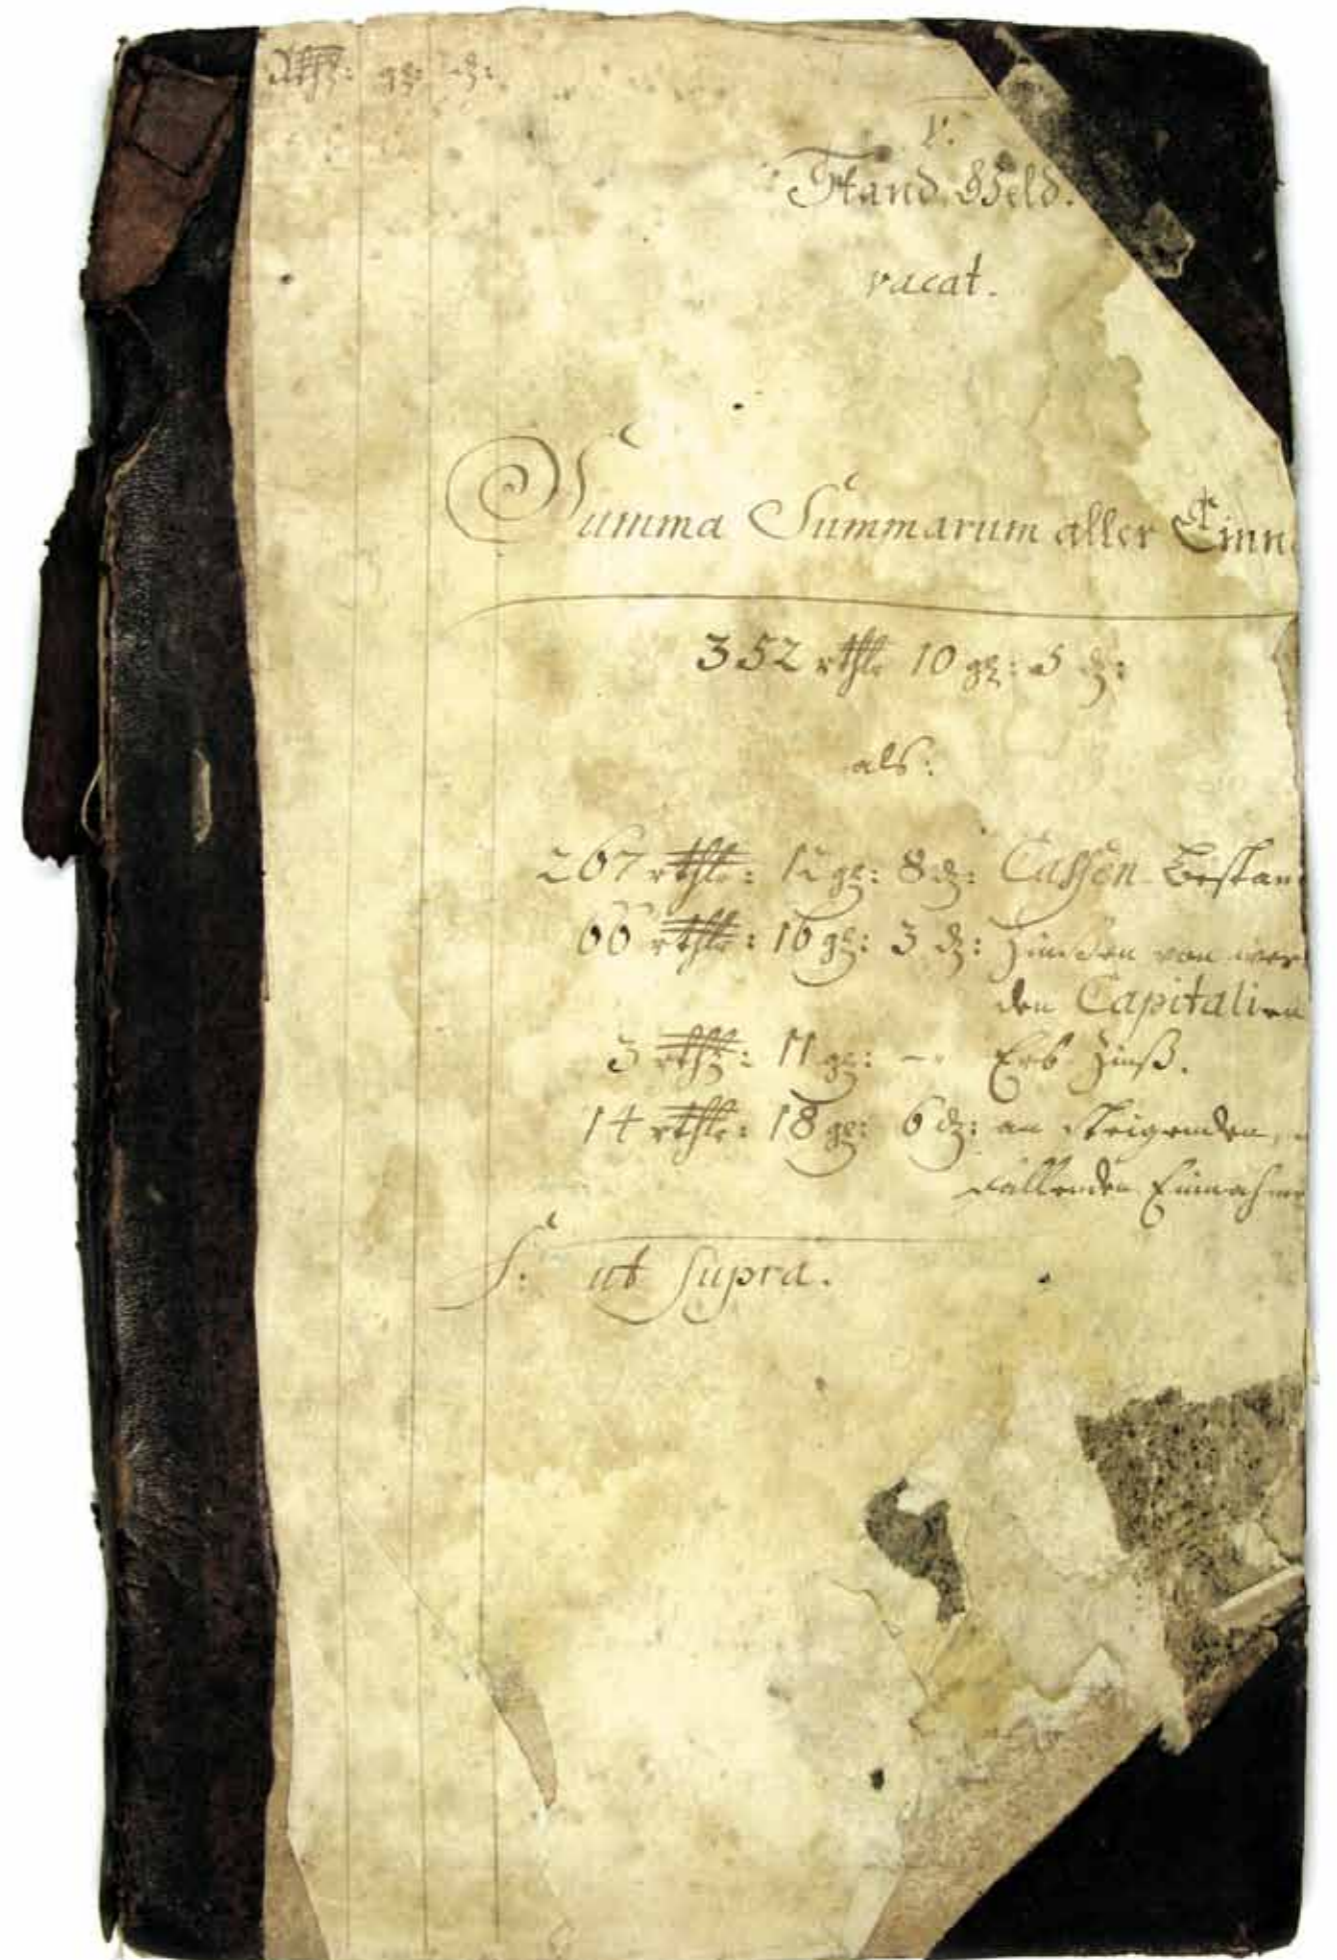 rthlr: gg: d:
V.
Stand Geld.
vacat.
Summa Summarum aller Einn
352 rthlr 10 gg: 5 d:
als:
267 rthlr: 12 gg: 8 d: Cassen Bestan
66 rthlr: 16 gg: 3 d: Zinsen von wer
den Capitalien
3 rthlr: 11 gg: — Erb Zinß.
14 rthlr: 18 gg: 6 d: an steigenden,
fallenden Einnahme
S: ut supra.